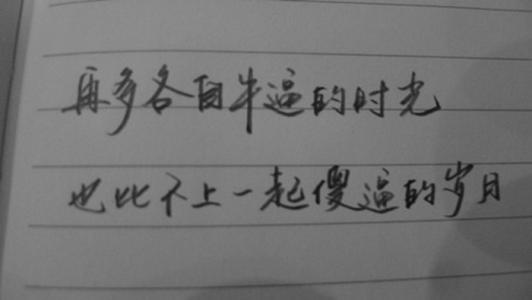 再多各自牛逼的时光
也比不上一起傻逼的岁月